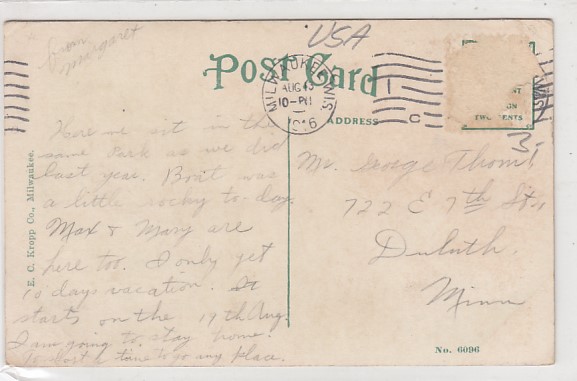 from
margaret
USA
Post Card
MILWAUKEE, WIS.
AUG 13
10-PM
1916
ADDRESS
1
C
ON
TWO CENTS
3.-
Here we sit in the
same Park as we did
last year. Boat was
a little rocky to-day.
Max & Mary are
here too. I only get
10 days vacation. It
starts on the 19th Aug.
I am going to stay home.
a time to go any place.
Mr. George Thom
722 E 7th St.,
Duluth.
Minn
E. C. Kropp Co., Milwaukee.
No. 6096